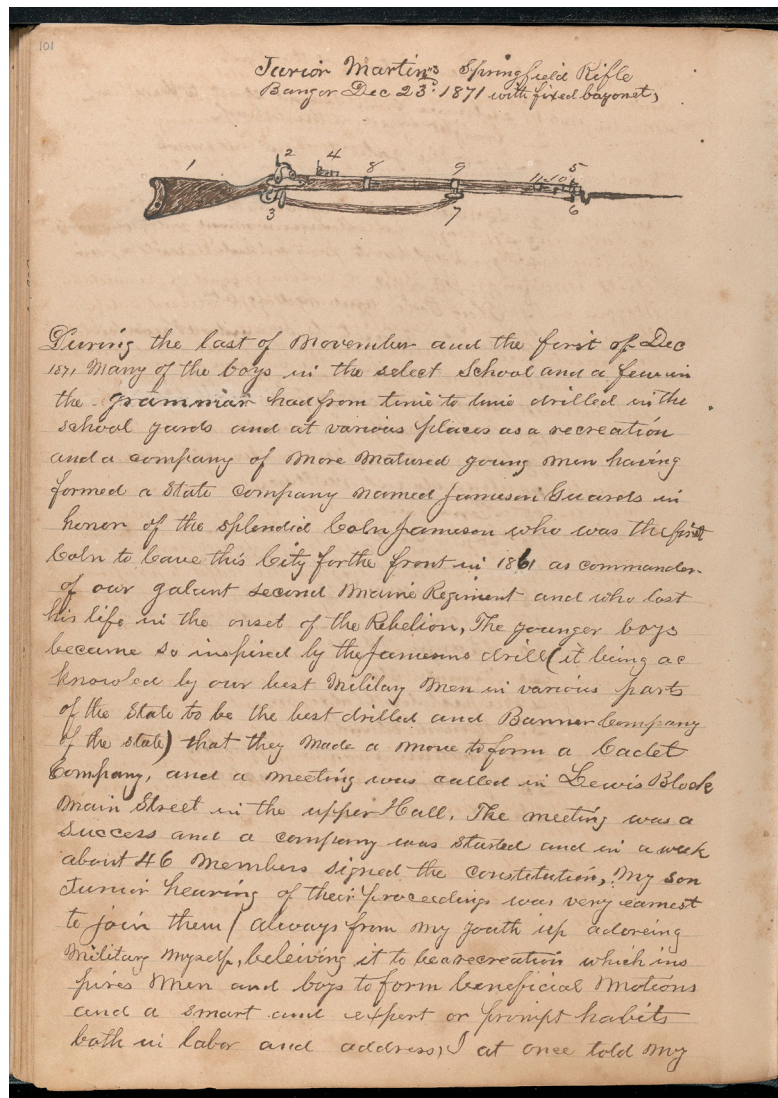 101
Junior Martin's Springfield Rifle
Bangor Dec 23d 1871 with fixed bayonet,
1 2 4 8 9 11 10 5
3 7 6
During the last of November and the first of Dec
1871 Many of the boys in the select School and a few in
the grammar had from time to time drilled in the
school yards and at various places as a recreation
and a company of more matured young men having
formed a State company named Jameson Guards in
honor of the splendid Coln Jameson who was the first
Coln to leave this City for the front in 1861 as commander
of our galant second Maine Regiment and who lost
his life in the onset of the Rebelion, The younger boys
became so inspired by the Jamesons drill (it being ac
knowled by our best Military Men in various parts
of the State to be the best drilled and Banner Company
of the state) that they made a move to form a Cadet
Company, and a meeting was called in Lewis Block
Main Street in the upper Hall. The meeting was a
success and a company was started and in a week
about 46 Members signed the constitution, My son
Junior hearing of their proceedings was very earnest
to join them (always from my youth up adoreing
Military Myself, beleiving it to be a recreation which ins
pires Men and boys to form beneficial Motions
and a smart and expert or prompt habits
both in labor and address, I at once told My